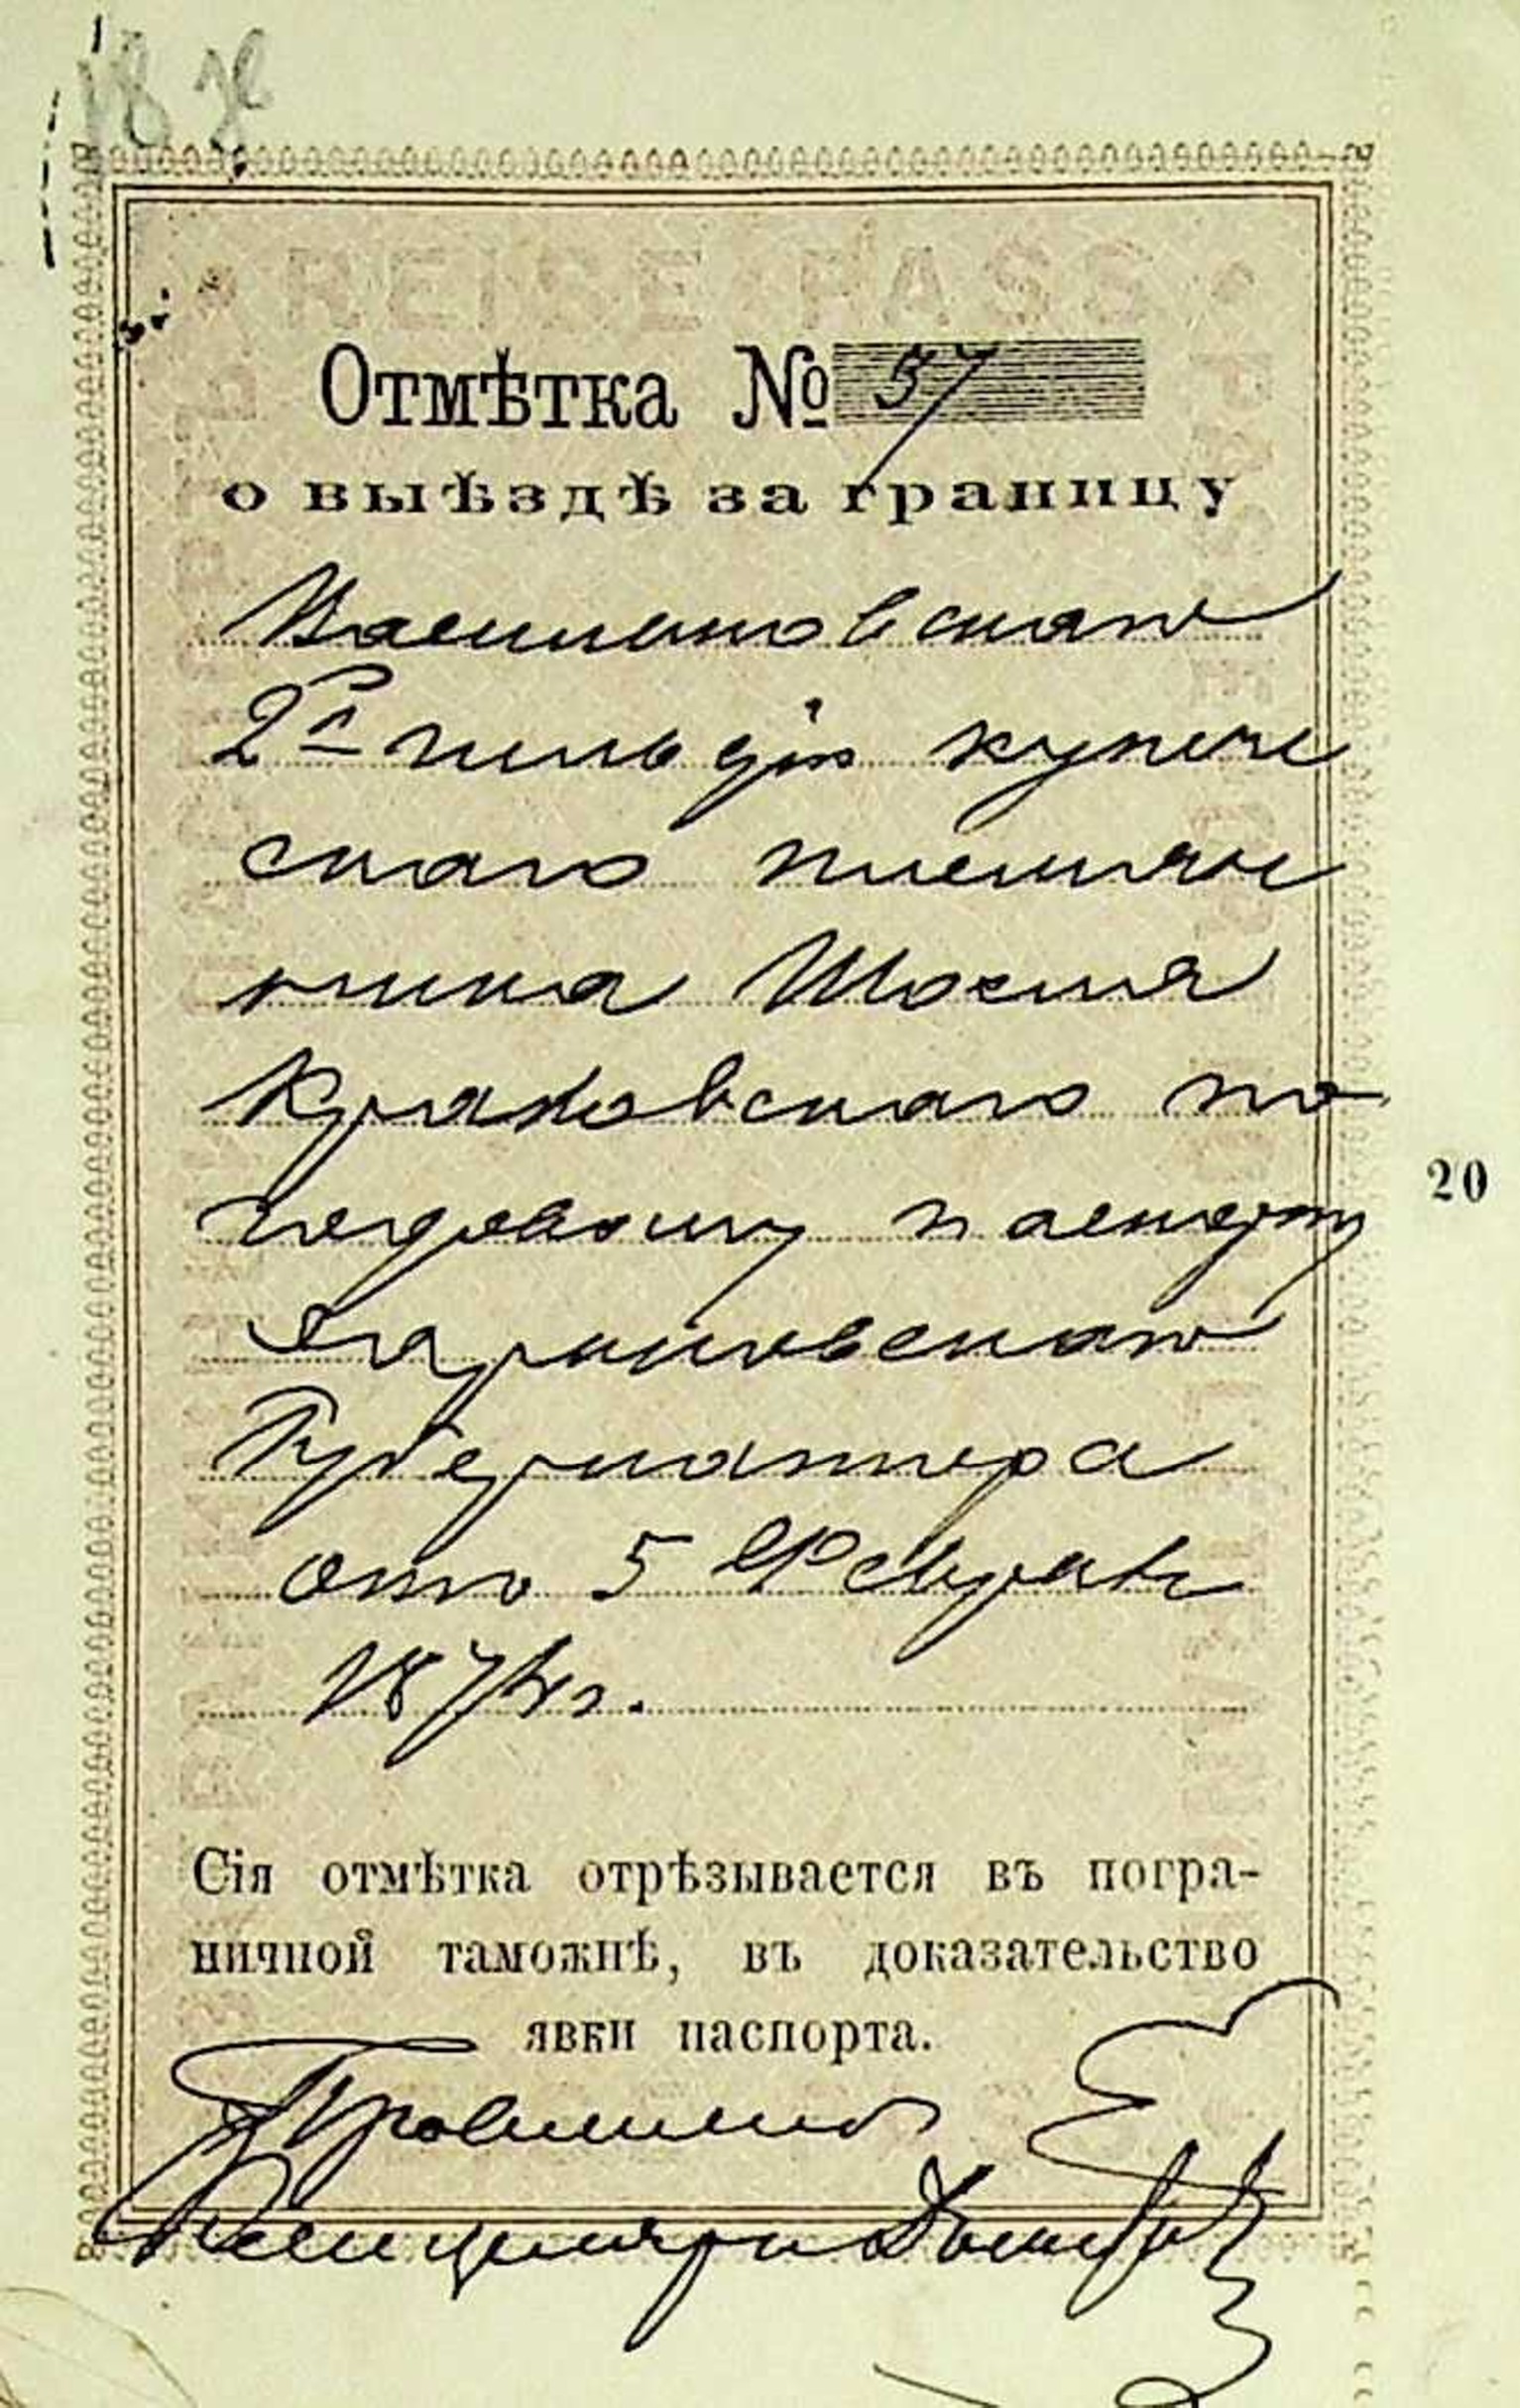 REISE-PASS
Отмѣтка № 37
о выѣздѣ за границу
Васильковскаго
2й гильдіи купече
скаго племян
ника Мосея
Краковскаго по
годовому паспорту
Губернатора
отъ 5 Февраля
1874 г.
20
Сія отмѣтка отрѣзывается въ погра-
ничной таможнѣ, въ доказательство
явки паспорта.
Правитель
Канцеляріи